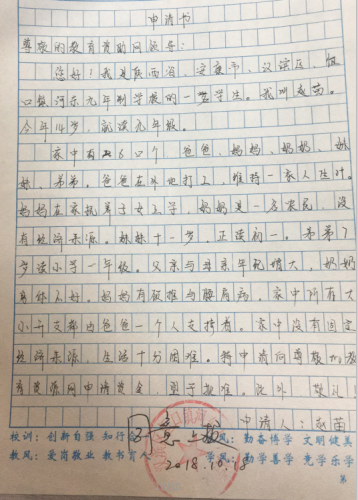 申请书
尊敬的教育资助网领导:
您好!我是陕西省、安康市、汉滨区、恒
口镇河东九年制学校的一名学生。我叫赵苗。
今年14岁,就读九年级。
家中有6口个 爸爸、妈妈、奶奶、妹
妹、弟弟。爸爸在外地打工,维持一家人生计。
妈妈在家抚养子女上学,奶奶是一名农民,没
有经济来源。妹妹十一岁,正读初一。弟弟7
岁读小学一年级。父亲与母亲年纪增大,奶奶
身体不好。妈妈有颈椎与腰肩病,家中所有大
小开支都由爸爸一个人支持着。家中没有固定
经济来源,生活十分困难。特申请向尊敬的教
育资源网申请资金,恳予批准。此外 敬礼!
申请人:赵苗
校训:创新自强 知行 风:勤奋博学 文明健美
教风:爱岗敬业 教书育人 学风:勤学善学 竞学乐学
2018.10.18
第